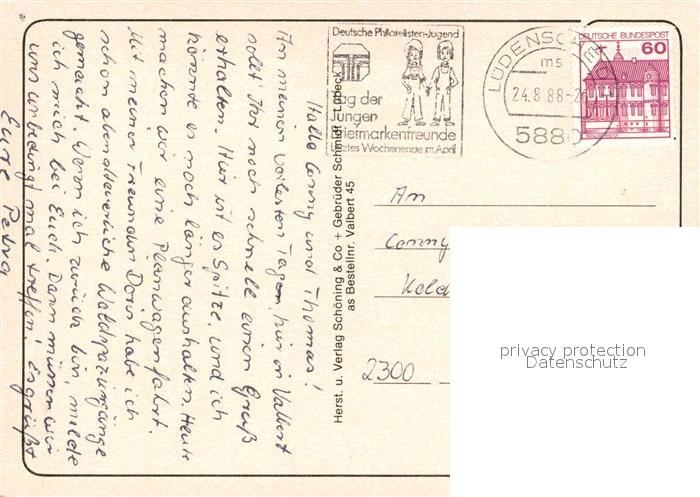 Deutsche Philatelisten-Jugend
Tag der
Jungen
Briefmarkenfreunde
Letztes Wochenende im April
LÜDENSCHEID
ms
24.8.88-2
5880
DEUTSCHE BUNDESPOST
60
Hallo Conny und Thomas!
An meinen vorletzten Tagen hier in Valbert
sollt Ihr noch schnell einen Gruß
erhalten. Hier ist es Spitze, und ich
könnte es noch länger aushalten. Heute
machen wir eine Planwagenfahrt.
Mit meiner Freundin Doris habe ich
schon abenteuerliche Waldspaziergänge
gemacht. Wenn ich zurück bin, melde
ich mich bei Euch. Dann müssen wir
uns unbedingt mal treffen! Es grüßt
Eure Petra
Herst. u. Verlag Schöning & Co + Gebrüder Schmidt · Lübeck
as Bestellnr. Valbert 45
An
Conny
2300
privacy protection
Datenschutz